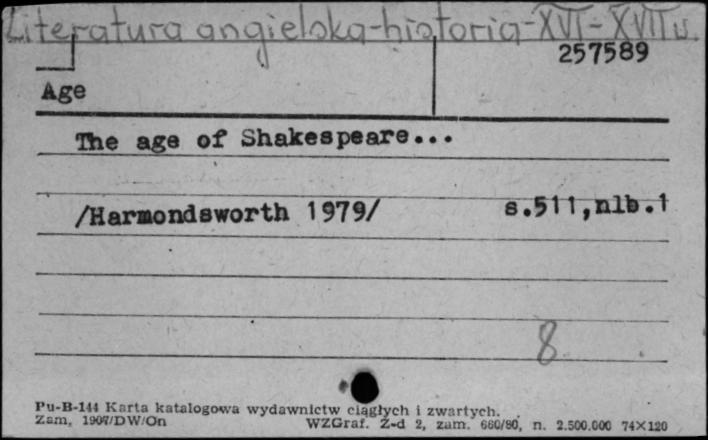 Literatura angielska-historia-XVI-XVII w.
257589
Age
The age of Shakespeare...
/Harmondsworth 1979/ s.511,nlb.1
8
Pu-B-144 Karta katalogowa wydawnictw ciągłych i zwartych.
Zam. 1907/DW/On WZGraf. Z-d 2, zam. 660/80, n. 2.500.000 74X120